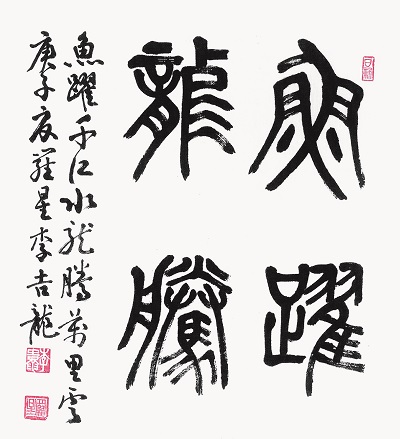 魚躍
龍騰
魚躍千江水龍騰萬里雲
庚子夏羅星李吉龍